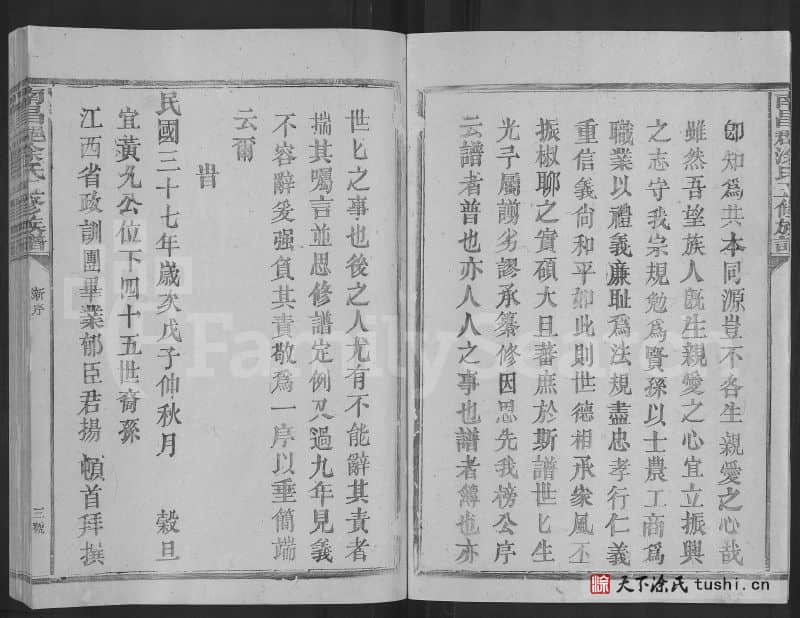 即知爲共本同源豈不各生親愛之心哉
雖然吾望族人旣生親愛之心宜立振興
之志守我宗規勉爲賢孫以士農工商爲
職業以禮義廉耻爲法規盡忠孝行仁義
重信義尙和平如此則世德相承家風丕
振椒聊之實碩大且蕃庶於斯譜世匕生
光予屬謭劣謬承纂修因思先我榜公序
云譜者普也亦人人之事也譜者簿也亦
世匕之事也後之人尤有不能辭其責者
揣其囑言並思修譜定例又過九年見義
不容辭爰强負其責敬爲一序以垂簡端
云爾
旹
民國三十七年歲次戊子仲秋月 穀旦
宜黃九公位下四十五世裔孫
江西省政訓團畢業郁臣君揚 頓首拜撰
南昌郡涂氏 修族譜
新序
三號
南昌郡涂氏 修族譜
FamilySearch
涂 天下涂氏 tushi.cn